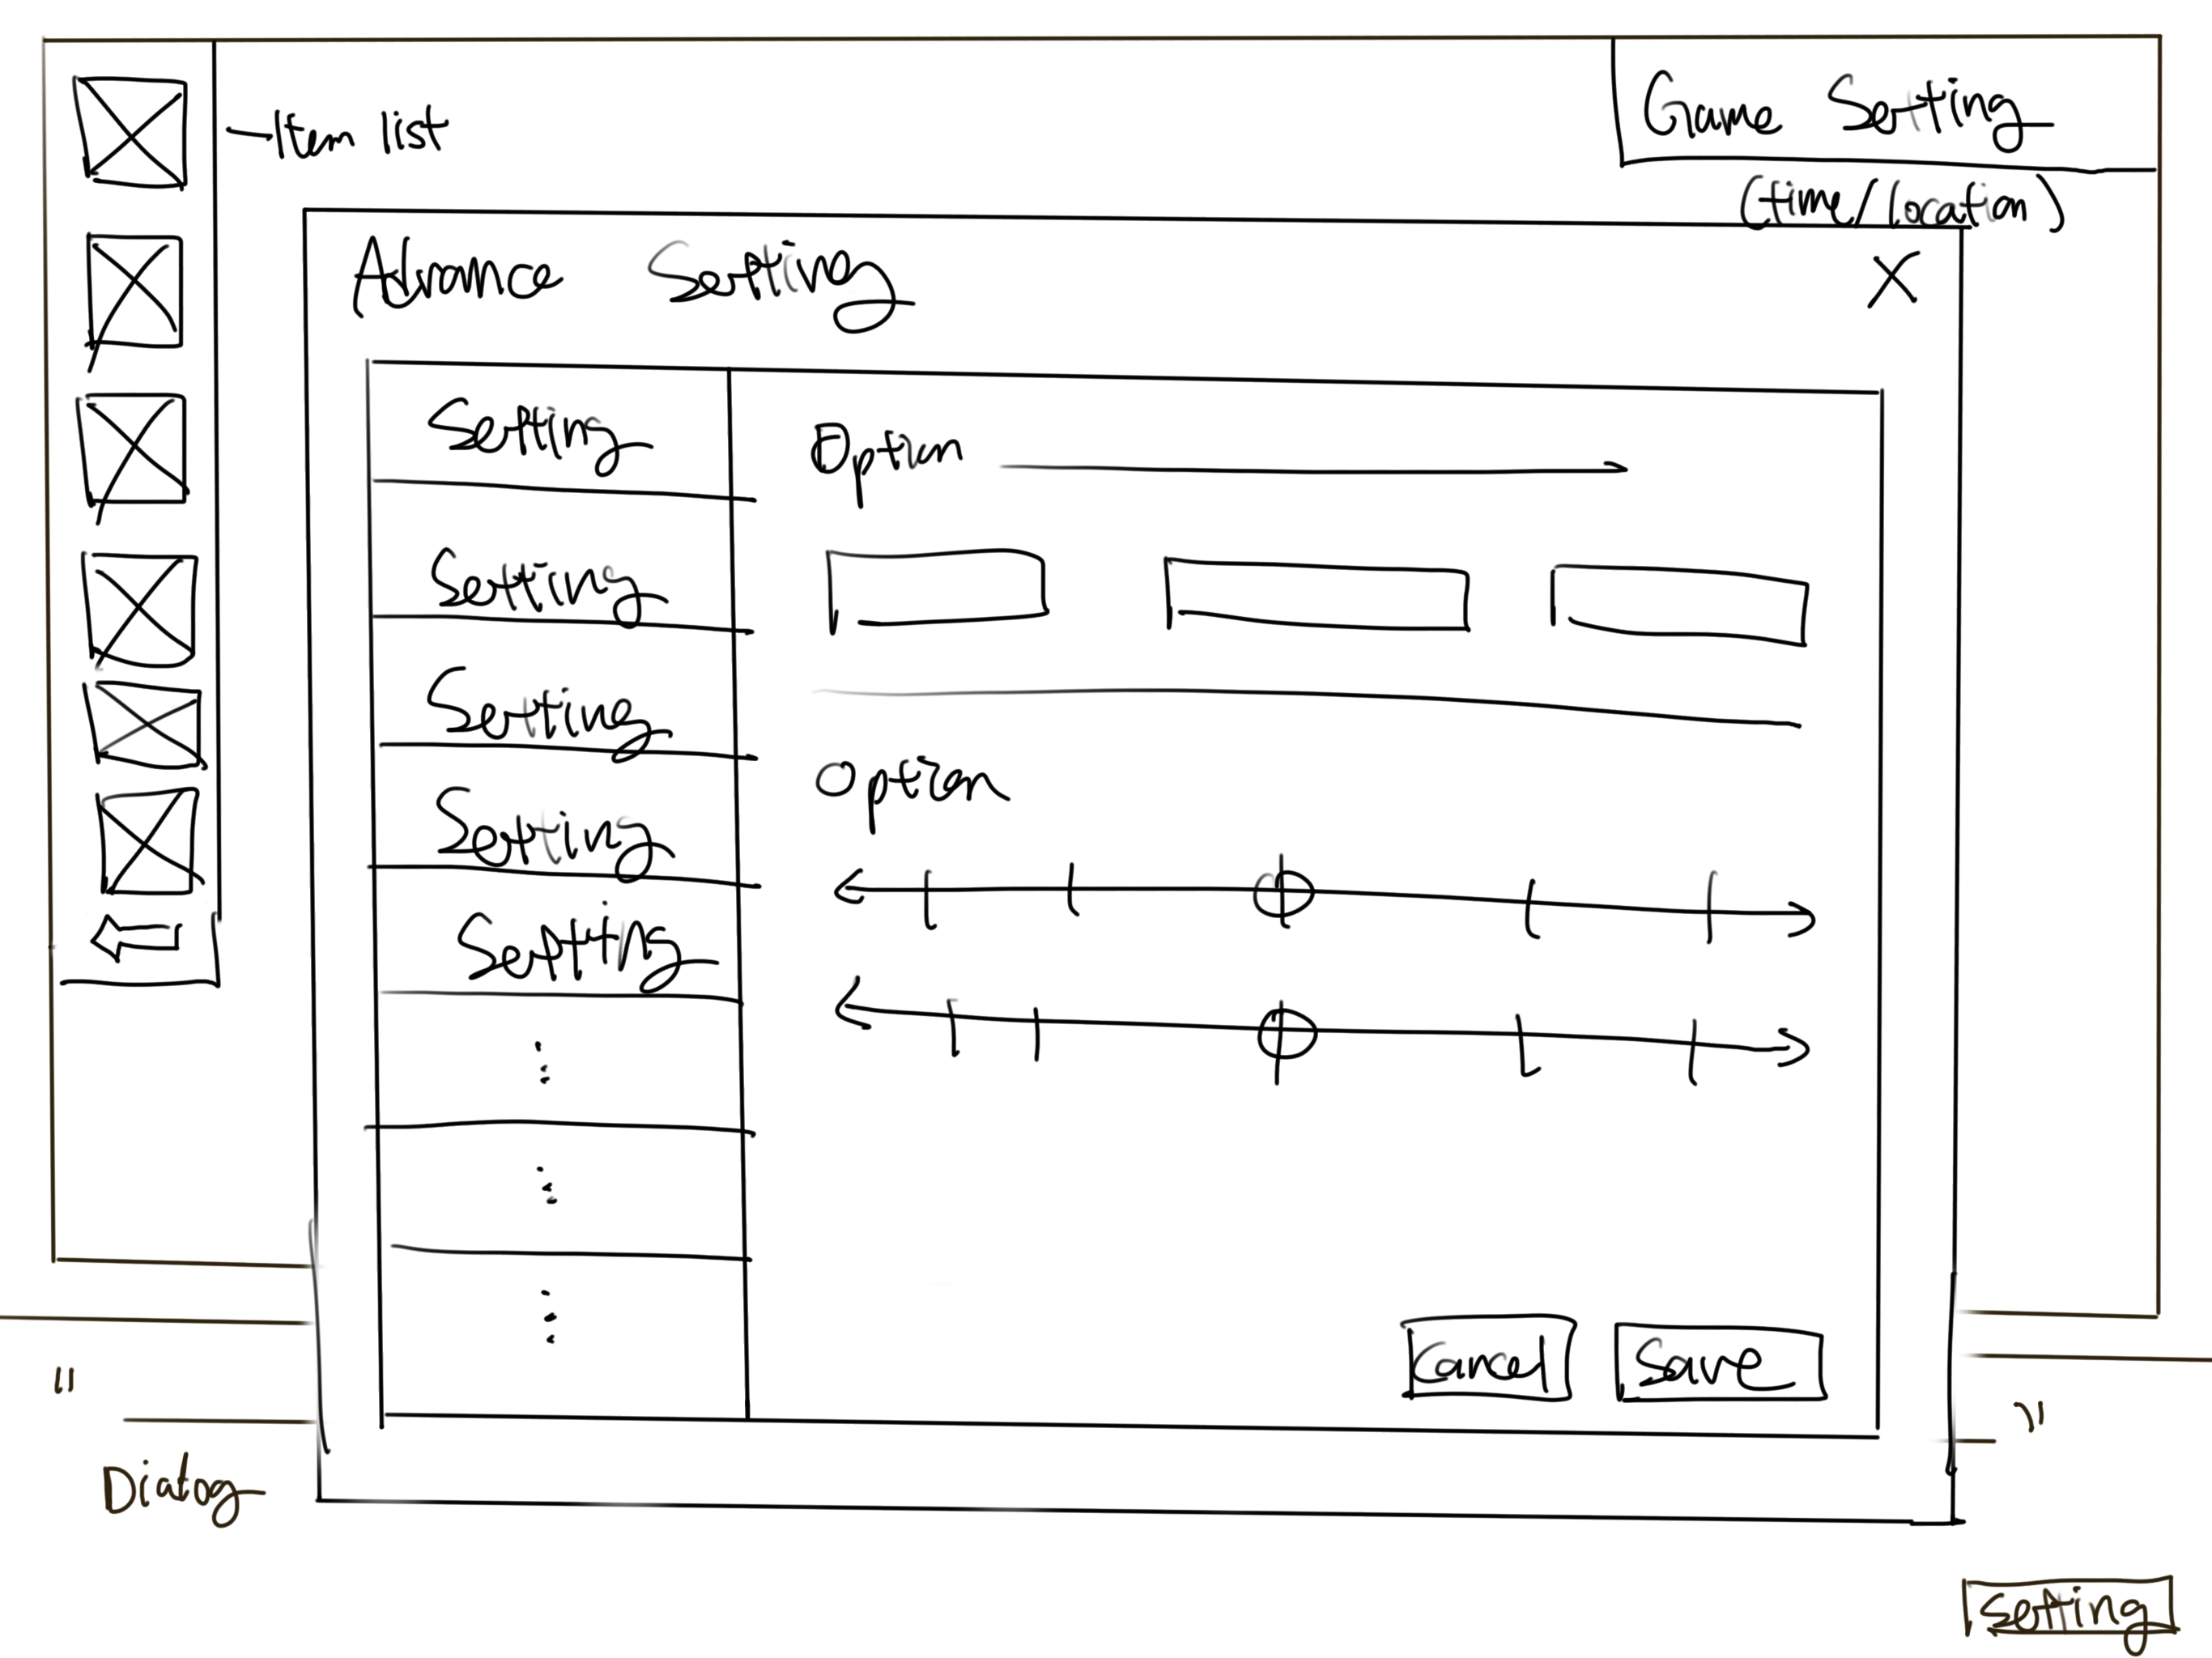 Item list
Game Setting
(time/location)
Advance Setting
X
Setting
Setting
Setting
Setting
Setting
Option
Option
Cancel
Save
"
"
Dialog
Setting